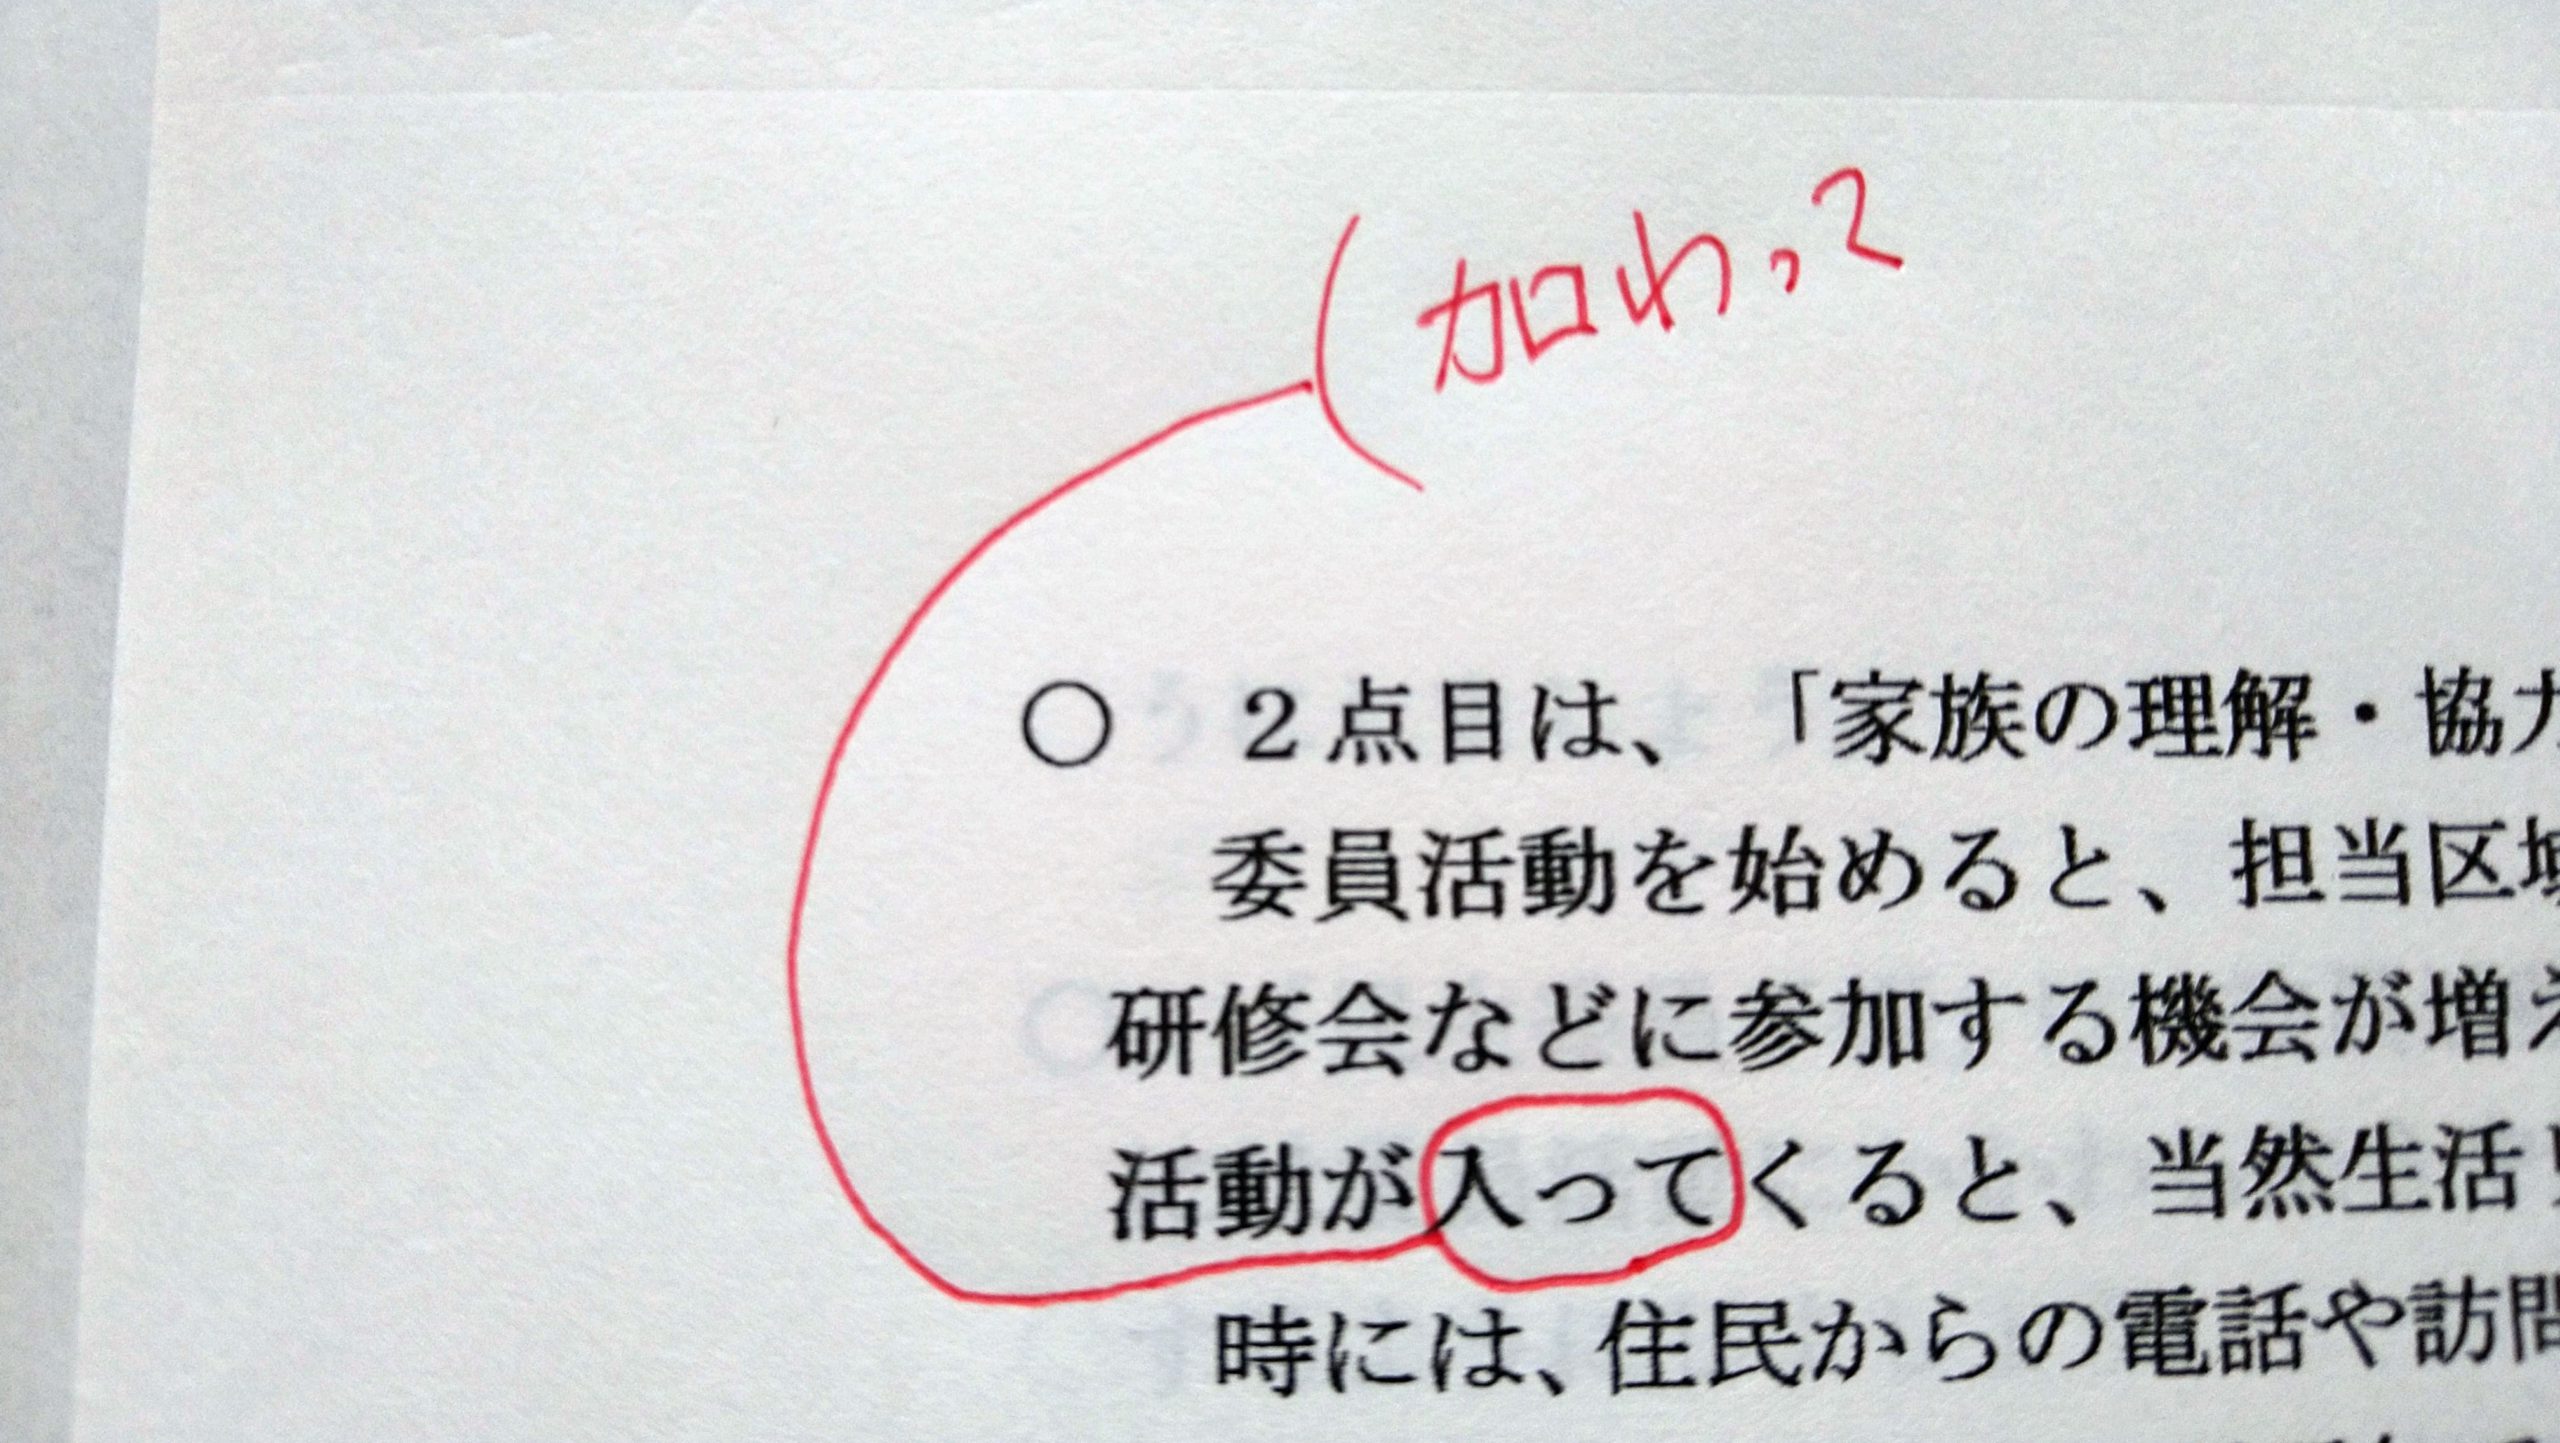 加わって
○ 2点目は、「家族の理解・協力
委員活動を始めると、担当区域
研修会などに参加する機会が増え
活動が入ってくると、当然生活
時には、住民からの電話や訪問